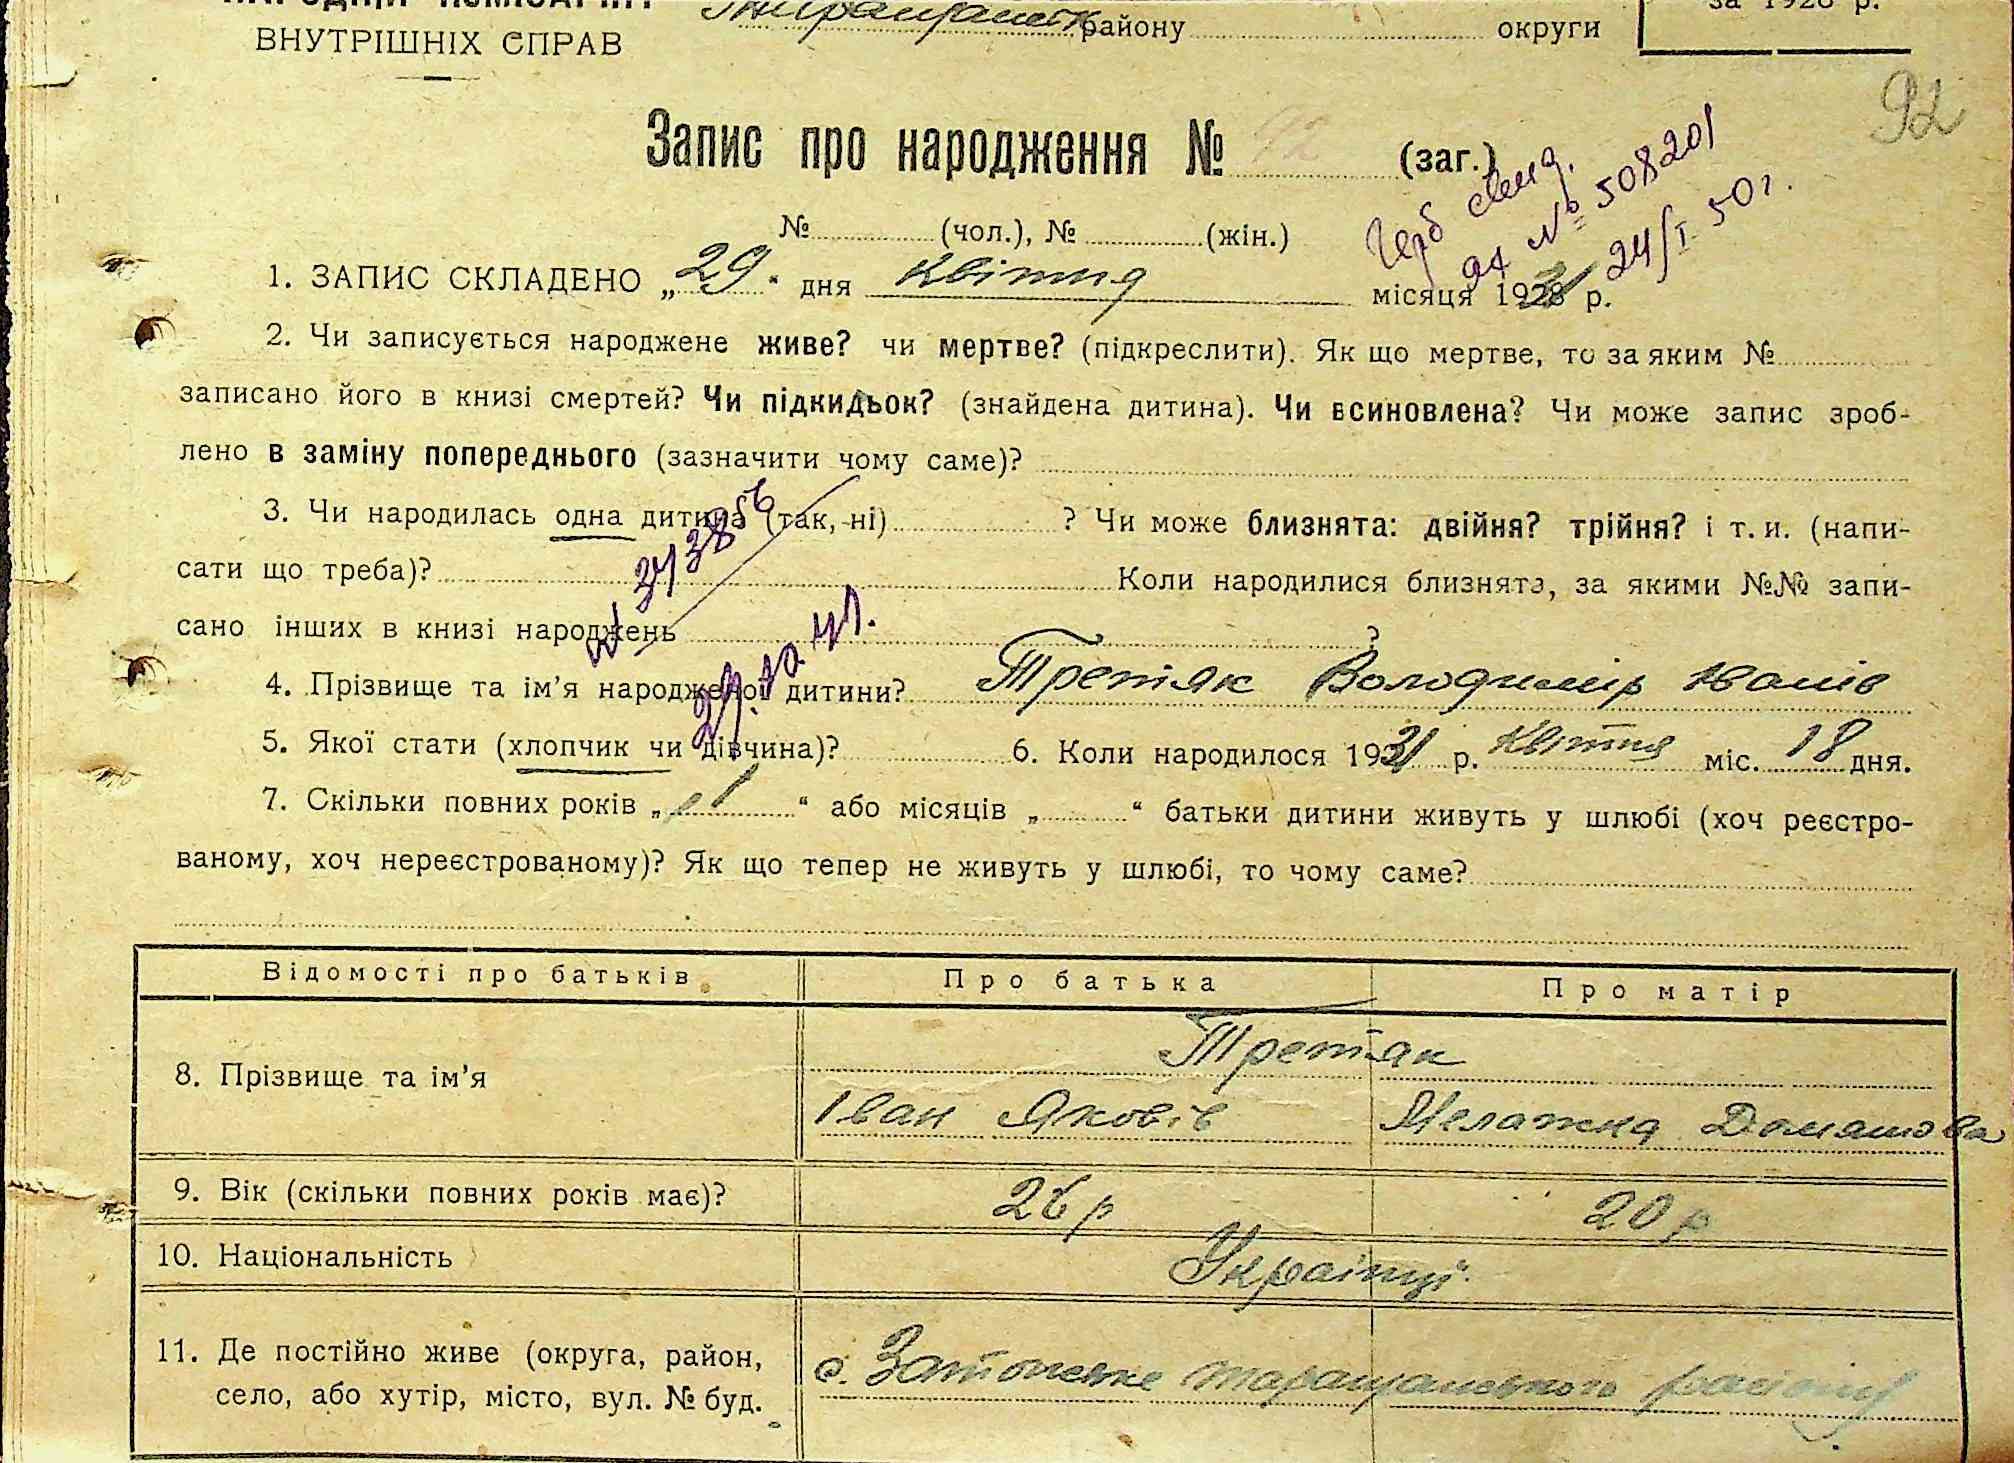 НАРОДНІЙ КОМІСАРІЯТ
ВНУТРІШНІХ СПРАВ
району округи
за 1928 р.
92
Запис про народження № 92 (заг.)
№ (чол.), № (жін.)
№ 508201
24/I 50 г.
1. ЗАПИС СКЛАДЕНО „29“ дня Квітня місяця 1931 р.
2. Чи записується народжене живе? чи мертве? (підкреслити). Як що мертве, то за яким №
записано його в книзі смертей? Чи підкидьок? (знайдена дитина). Чи всиновлена? Чи може запис зроб-
лено в заміну попереднього (зазначити чому саме)?
3. Чи народилась одна дитина (так, ні) ? Чи може близнята: двійня? трійня? і т. и. (напи-
сати що треба)? Коли народилися близнята, за якими №№ запи-
сано інших в книзі народжень ?
4. Прізвище та ім’я народженої дитини? Третяк Володимир Іванів
5. Якої стати (хлопчик чи дівчина)? 6. Коли народилося 1931 р. Квітня міс. 18 дня.
7. Скільки повних років „1“ або місяців „ “ батьки дитини живуть у шлюбі (хоч реєстро-
ваному, хоч нереєстрованому)? Як що тепер не живуть у шлюбі, то чому саме?
Відомості про батьків Про батька Про матір
8. Прізвище та ім’я Третяк
Іван Яковів Мелажка Домашова
9. Вік (скільки повних років має)? 26 р 20 р
10. Національність Українці
11. Де постійно живе (округа, район, с. Затонське таращанського району
село, або хутір, місто, вул. № буд.